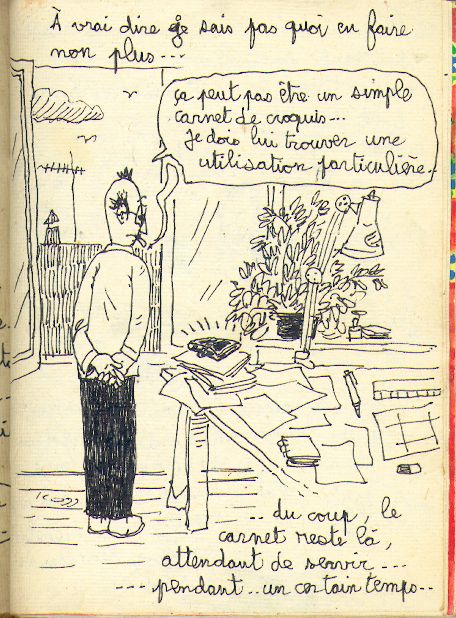 À vrai dire je sais pas quoi en faire
non plus...
ça peut pas être un simple
carnet de croquis...
Je dois lui trouver une
utilisation particulière..
.. du coup, le
carnet reste là,
attendant de servir...
---- pendant.. un certain temps..